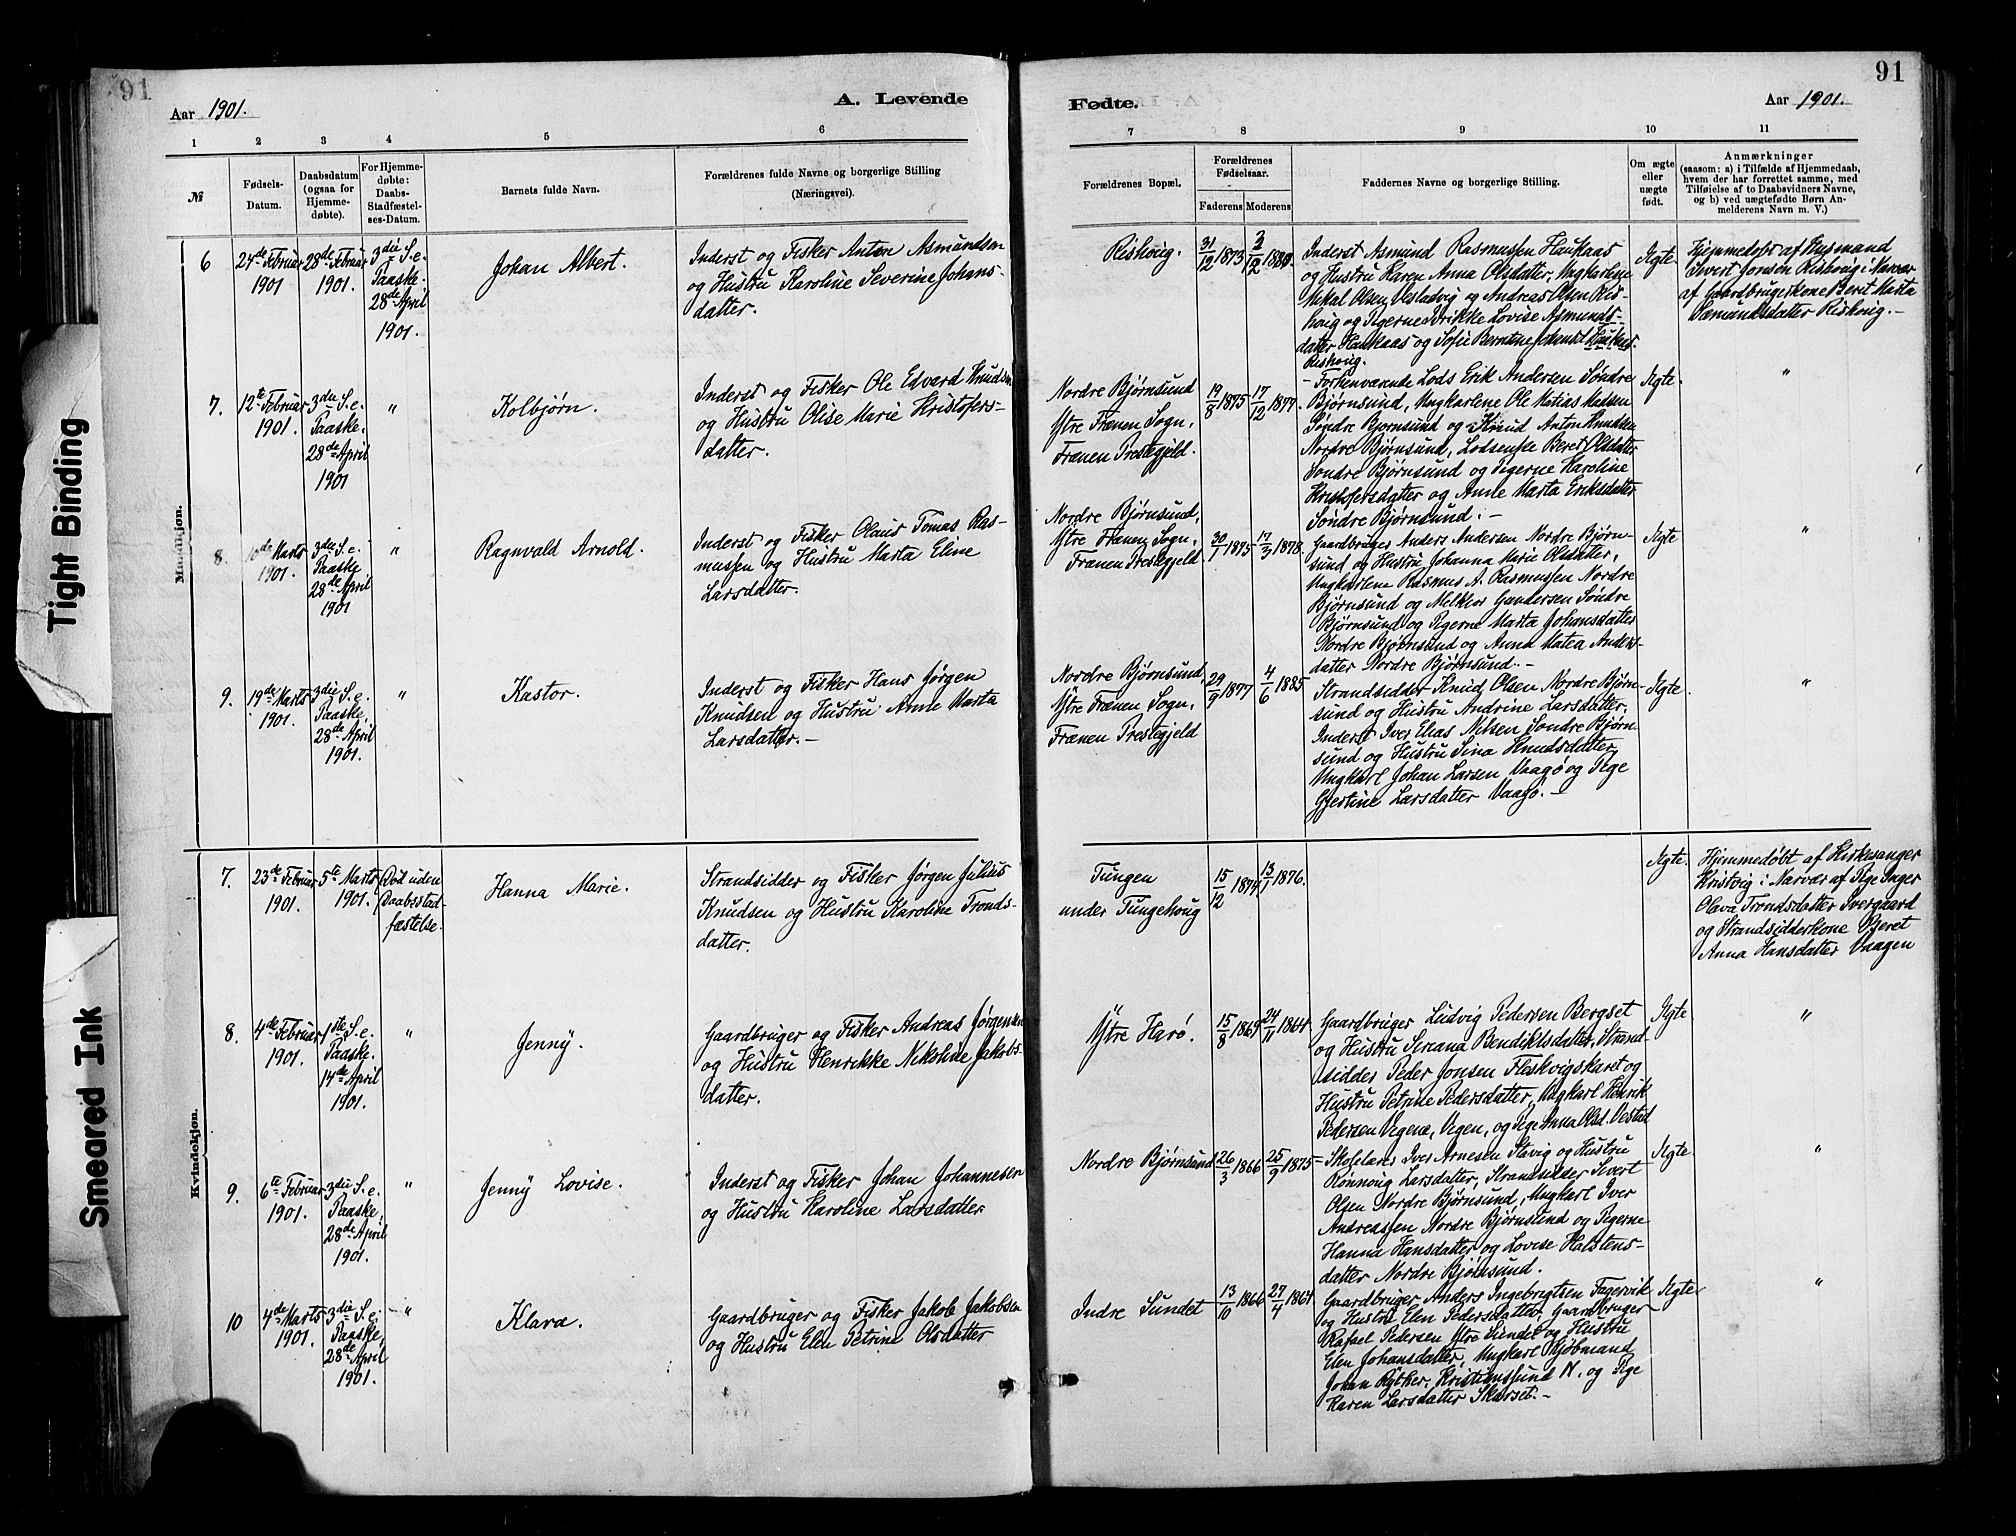 91
Aar 1901.
A. Levende
1 2 3 4 5 6
№
Fødsels-
Datum.
Daabsdatum
(ogsaa for
Hjemme-
døbte).
For Hjemme-
døbte:
Daabs-
Stadfæstel-
ses-Datum.
Barnets fulde Navn.
Forældrenes fulde Navne og borgerlige Stilling
(Næringsvei).
Tight Binding
Smeared Ink
Mandkjøn.
6
24de Februar
1901
28de Februar
1901.
3die S. e.
Paaske.
28de April
1901.
Johan Albert.
Inderst og Fisker Anton Asmundsen
og Hustru Karoline Severine Johans-
datter.
7.
12te Februar
1901.
3die S. e.
Paaske,
28de April
1901
"
Kolbjørn.
Inderst og Fisker Ole Edvard Knudsen
og Hustru Olise Marie Kristofers-
datter.
8.
10de Marts
1901.
3die S. e.
Paaske
28de April
1901
"
Ragnvald Arnold.
Inderst og Fisker Olaus Tomas Ras-
mussen og Hustru Marta Eline
Larsdatter.
9.
19de Marts
1901.
3die S. e.
Paaske,
28de April
1901.
"
Kastor.
Inderst og Fisker Hans Jørgen
Knudsen og Hustru Anne Marta
Larsdatter. -
Kvindekjøn.
7.
23de Februar
1901.
5te Marts
1901.
Død uden
Daabsstad-
fæstelse.
Hanna Marie.
Strandsidder og Fisker Jørgen Julius
Knudsen og Hustru Karoline Tronds-
datter.
8.
4de Februar
1901.
1ste S. e.
Paaske.
14de April
1901.
"
Jenny.
Gaardbruger og Fisker Andreas Jørgensen
og Hustru Henrikke Nikoline Jakobs-
datter.
9.
6te Februar
1901.
3die S. e.
Paaske,
28de April
1901.
"
Jenny Lovise.
Inderst og Fisker Johan Johannesen
og Hustru Karoline Larsdatter
10
4de Marts
1901.
3die S. e.
Paaske,
28de April
1901.
"
Klara.
Gaardbruger og Fisker Jakob Jakobsen
og Hustru Elen Petrine Olsdatter
91
Fødte.
Aar 1901.
7 8 9 10 11
Forældrenes Bopæl.
Forældrenes
Fødselsaar.
Faderens Moderens
Faddernes Navne og borgerlige Stilling.
Om ægte
eller
uægte
født.
Anmærkninger
(saasom: a) i Tilfælde af Hjemmedaab,
hvem der har forrettet samme, med
Tilføielse af to Daabsvidners Navne,
og b) ved uægtefødte Børn An-
melderens Navn m. V.)
Rishoug.
31/12 1873
Inderst Asmund Rasmussen Haukaas
og Hustru Karen Anna Olsdatter, Ungkarlene
Mikal Olsen Vestadvig og Andreas Olsen Ris-
houg og Pigerne Lovise Asmunds-
datter Haukaas og Sofie Berntine
Rishoug.
Ægte
Hjemmedøbt af Husmand
Sivert Jonsen Rishoug i Nærvær
af Gaardbrugerkone Berit Marta
Rishoug. -
Nordre Bjørnsund
Ytre Frænen Sogn,
Frænen Prestegjeld.
19/8 1875
17/12 1877.
- Forhenværende Lods Erik Andersen Søndre
Bjørnsund, Ungkarlene Ole Matias Madsen
Søndre Bjørnsund og Knud Anton Knudsen
Nordre Bjørnsund, Lodsenke Beret Olsdatter
Søndre Bjørnsund og Pigerne Karoline
Kristofersdatter og Anne Marta Eriksdatter
Søndre Bjørnsund. -
Ægte.
"
Nordre Bjørnsund,
Ytre Frænen Sogn,
Frænen Prestegjeld.
30/1 1875
17/3 1878.
Gaardbruger Anders Andersen Nordre Bjørn-
sund og Hustru Johanna Marie Olsdatter,
Ungkarlene Rasmus A. Rasmussen Nordre
Bjørnsund og Melkior Gundersen Søndre
Bjørnsund og Pigerne Marta Johansdatter
Nordre Bjørnsund og Anna Matea Anders-
datter Nordre Bjørnsund. -
Ægte
"
Nordre Bjørnsund,
Ytre Frænen Sogn,
Frænen Prestegjeld
29/9 1877
4/6 1885
Strandsidder Knud Olsen Nordre Bjørn-
sund og Hustru Andrine Larsdatter,
Inderst Iver Elias Nelsen Søndre Bjørn-
sund og Hustru Sina Knudsdatter,
Ungkarl Johan Larsen Vaagø og Pige
Gjertine Larsdatter Vaagø. -
Ægte.
"
Tungen
under Tungehoug
15/12 1874
13/1 1876.
Ægte.
Hjemmedøbt af Kirkesanger
Kristvig i Nærvær af Pige Inger
Olava Trondsdatter Ivergaard
og Strandsidderkone Beret
Anna Hansdatter Vaagen
Ytre Harø.
15/8 1869
24/11 1864
Gaardbruger Ludvig Pedersen Bergset
og Hustru Sereana Bendiktsdatter, Strand-
sidder Peder Jonsen Fleskvigskaret og
Hustru Petrine Pedersdatter, Ungkarl Henrik
Pedersen Vegene, Vegen, og Pige Anna Olsd. Vestad
Ægte
"
Nordre Bjørnsund
26/3 1866
25/9 1875
Skolelærer Iver Arnesen Slavig og Hustru
Rønnoug Larsdatter, Strandsidder Sivert
Olsen Nordre Bjørnsund, Ungkarl Iver
Andreassen Nordre Bjørnsund og Pigerne
Hanna Hansdatter og Lovise Halstens-
datter Nordre Bjørnsund.
Ægte.
"
Indre Sundet
13/10 1866
27/4 1864
Gaardbruger Anders Ingebrigtsen Fagervik
og Hustru Elen Pedersdatter, Gaardbruger
Rafael Pedersen Ytre Sundet og Hustru
Elen Johansdatter, Ungkarl Kjøbmand
Johan Kristianssund N. og Pige
Karen Larsdatter Skarset. -
Ægte
"